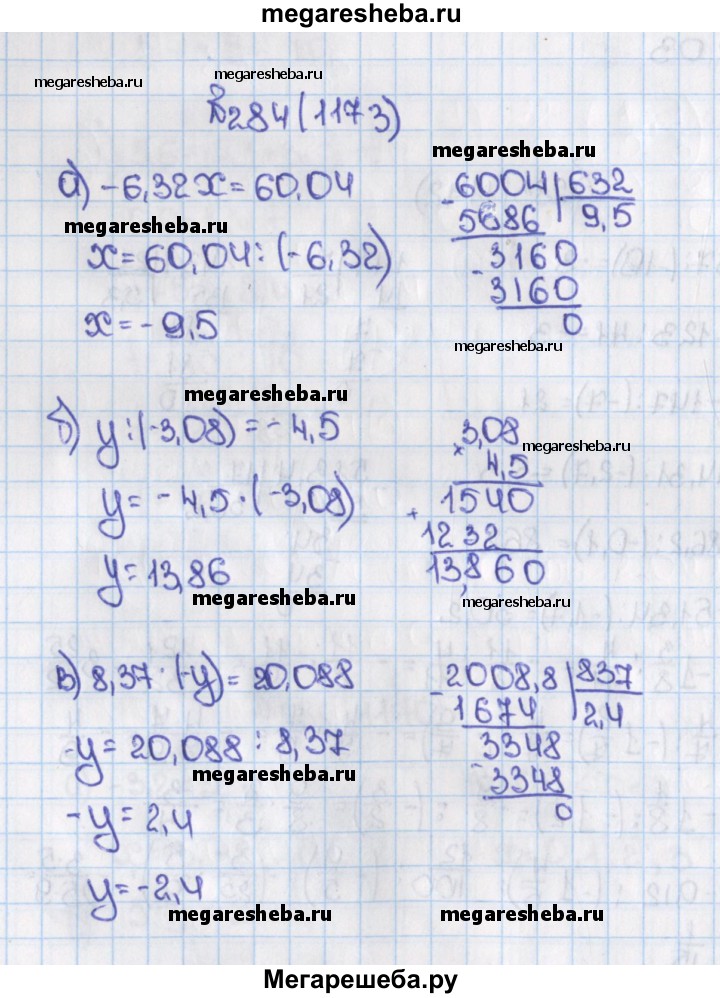 megaresheba.ru
megaresheba.ru
megaresheba.ru
№284(1173)
а) -6,32x = 60,04
megaresheba.ru
x = 60,04 : (-6,32)
x = -9,5
megaresheba.ru
- 6004 | 632
5686 9,5
- 3160
3160
0
megaresheba.ru
megaresheba.ru
б) y : (-3,08) = -4,5
y = -4,5 · (-3,08)
y = 13,86
megaresheba.ru
3,08
megaresheba.ru
× 4,5
+ 1540
1232
13,860
megaresheba.ru
в) 8,37 · (-y) = 20,088
-y = 20,088 : 8,37
megaresheba.ru
-y = 2,4
y = -2,4
megaresheba.ru
- 2008,8 | 837
1674 2,4
- 3348
3348
0
megaresheba.ru
Мегарешеба.ру